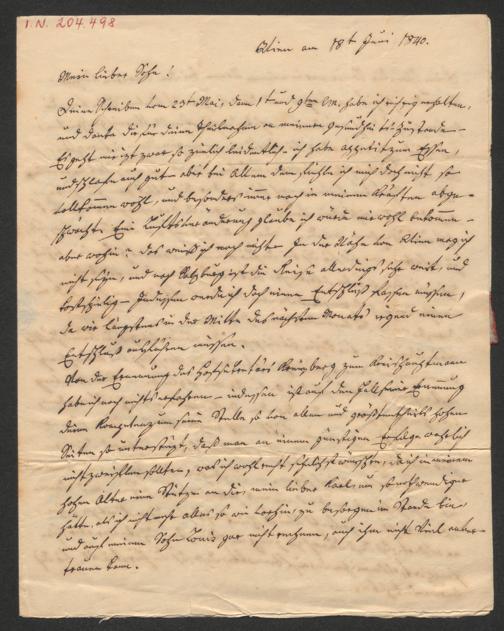 I. N. 204.498
Wien am 18t Juni 1840.
Mein lieber Sohn!
Deine Schreiben vom 25t Mai, dann 1t und 9ten habe ich richtig erhalten,
und danke dir für deine Theilnahme an meinem Gesundheitszustande –
Es geht mir jetzt zwar so ziemlich leidentlich – ich habe Appetit zum Essen,
und schlafe auch gut – aber bei Allem dem fühle ich mich doch nicht so
vollkommen wohl, und besonders immer noch in meinen Kräften abge-
schwächt. Eine Luftveränderung glaube ich würde mir wohl bekommen –
aber wohin? das weiß ich noch nicht – In der Nähe von Wien mag ich
nicht seyn, und nach Salzburg ist die Reise allerdings sehr weit, und
kostspielig – Indessen werde ich doch einen Entschluß fassen müssen,
da wir längstens in der Mitte des nächsten Monats irgend einen
Entschluß ausführen müssen.
Von der Ernennung des Hofsekretärs zum Kreishauptmann
habe ich noch nichts erfahren – indessen ist auf den Fall seiner Ernennung
deine Kompetenz um seine Stelle so von allen und größtentheils hohen
Seiten so unterstützt, daß man an einem günstigen Erfolge wohl
nicht zweifeln sollte, was ich wohl recht wünschte, da ich in meinem
hohen Alter eine Stütze an dir, mein lieber Karl, um so nothwendiger
hätte, als ich nicht mehr alles so wie vorhin zu besorgen im Stande bin,
und auf meinen Sohn Louis gar nicht rechnen, auch ihm nicht viel anver-
trauen kann.